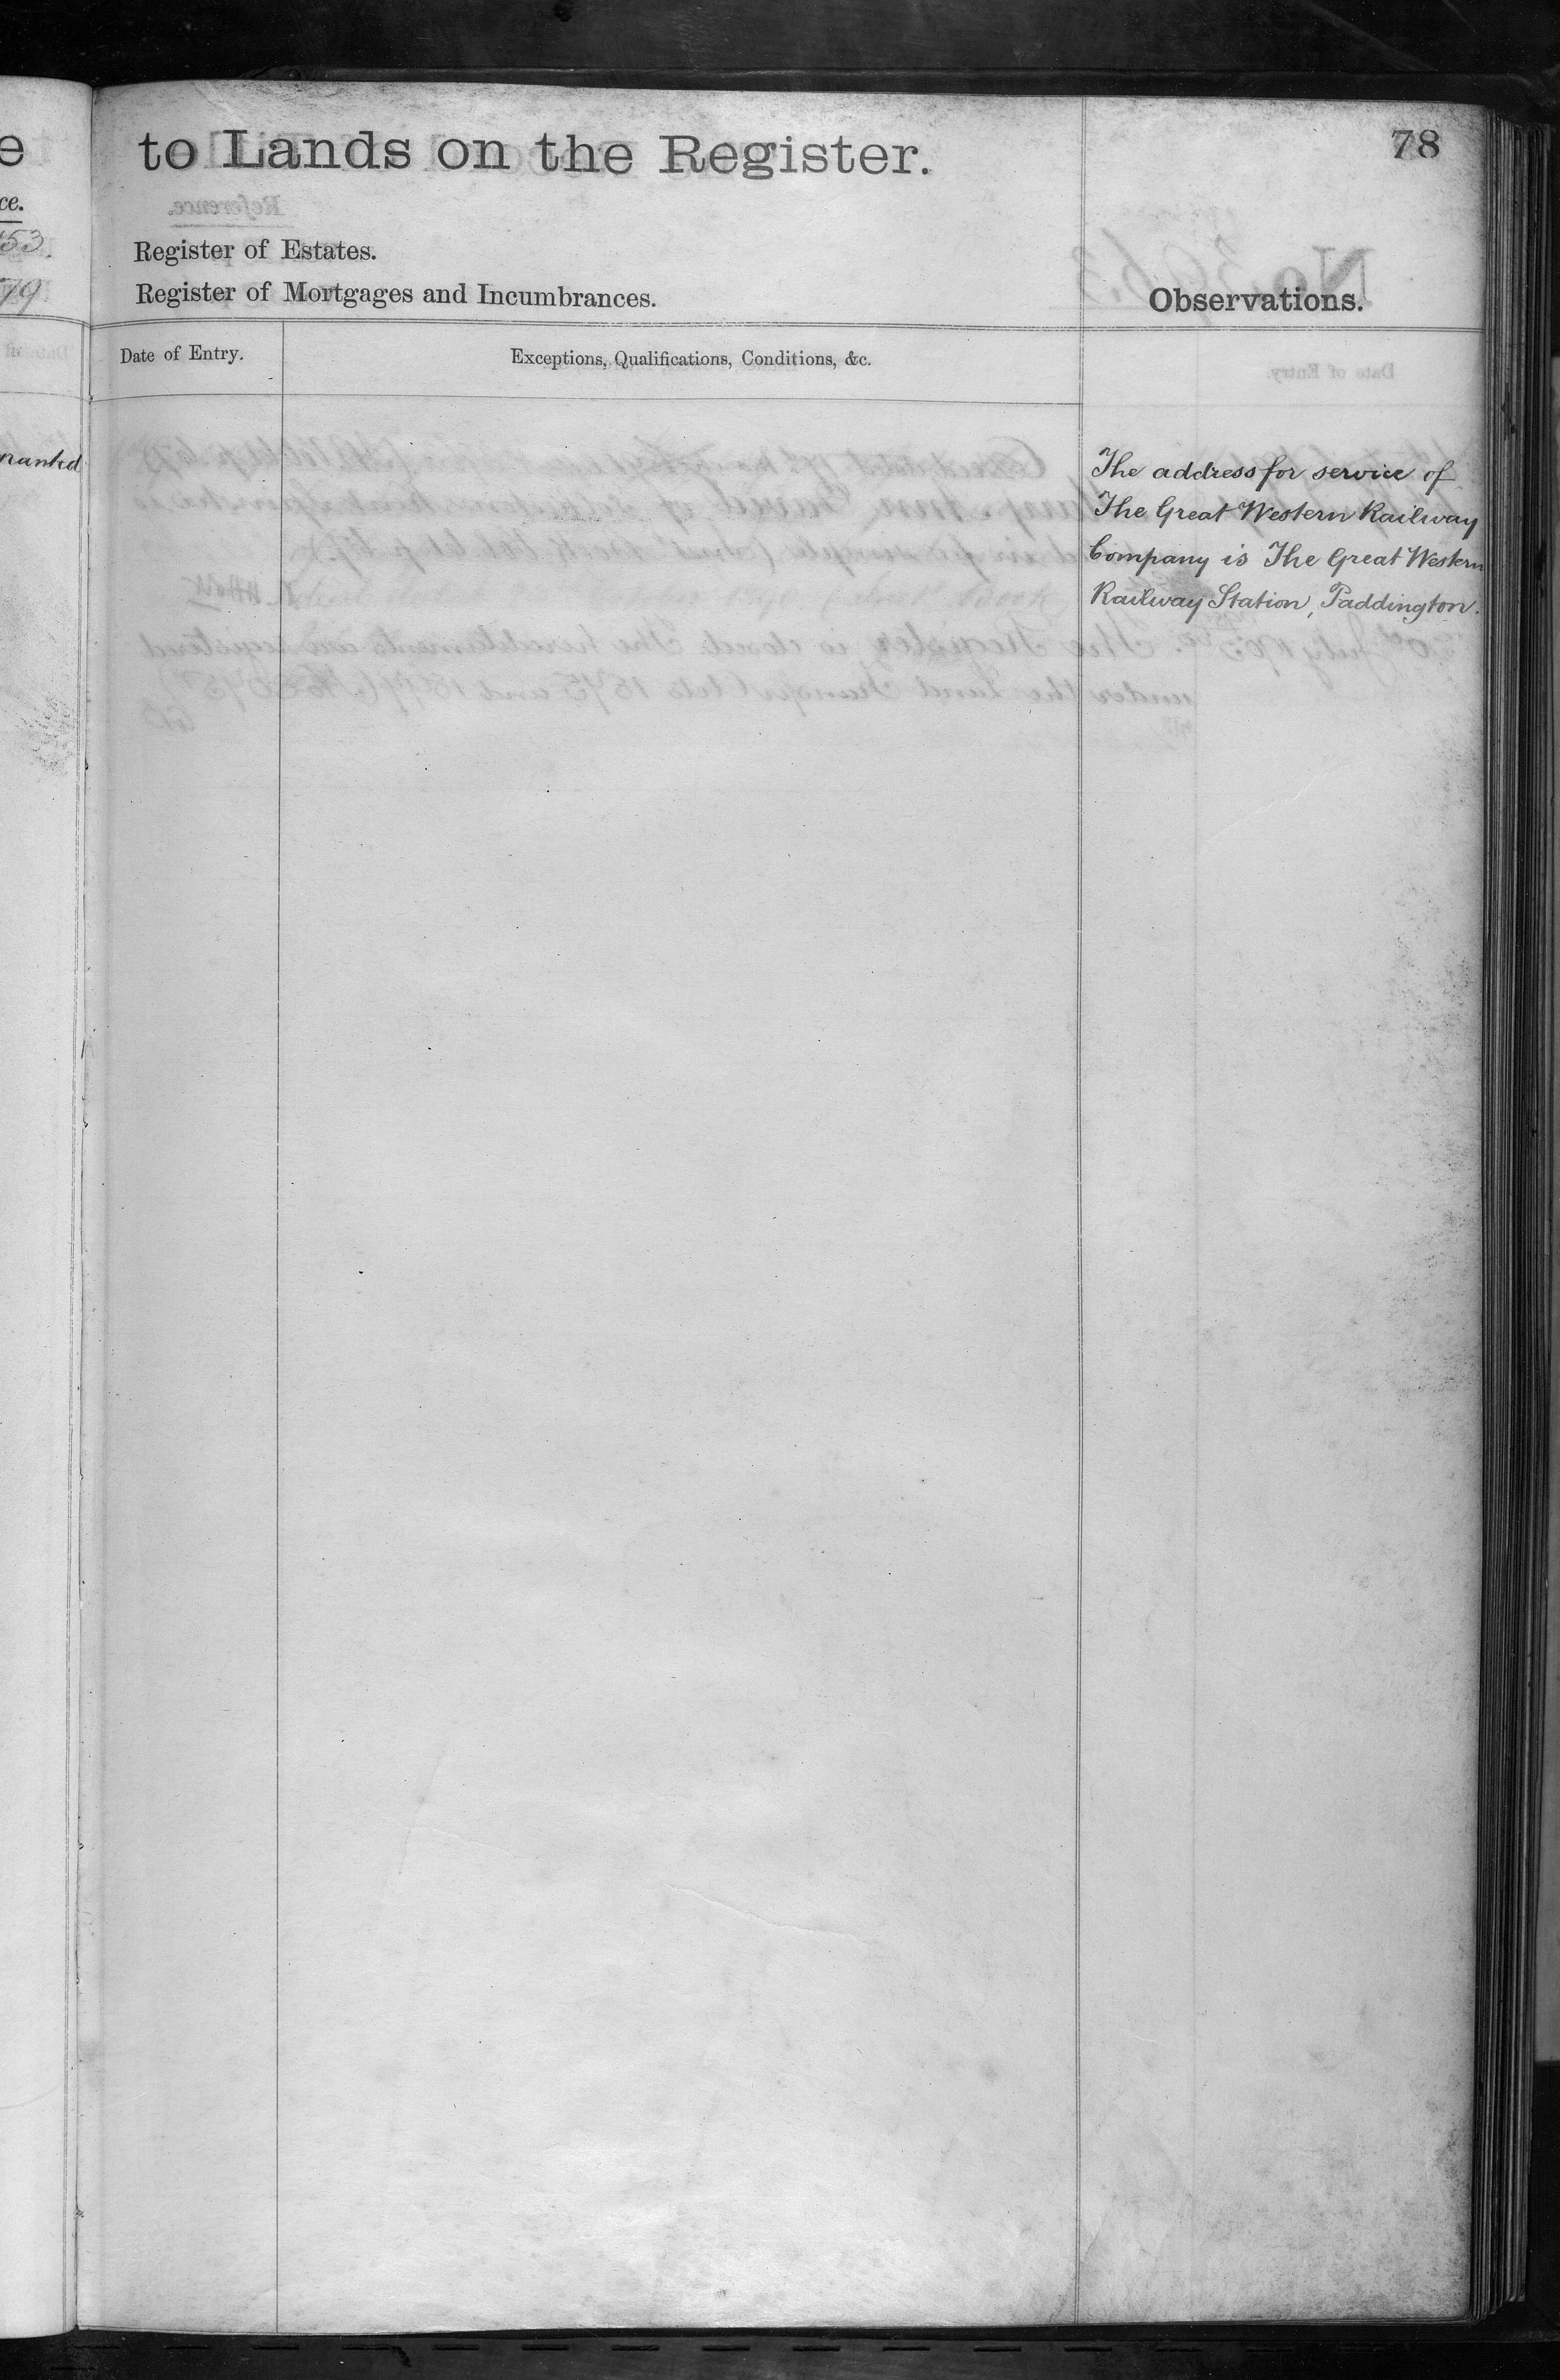 to Lands on the Register.
78
Register of Estates.
Register of Mortgages and Incumbrances.
Observations.
Date of Entry.
Exceptions, Qualifications, Conditions, &c.
The address for service of
The Great Western Railway
Company is The Great Western
Railway Station, Paddington.
e
ce.
53.
79
ranted